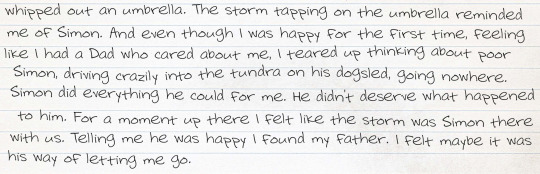 whipped out an umbrella. The storm tapping on the umbrella reminded
me of Simon. And even though I was happy for the first time, feeling
like I had a Dad who cared about me, I teared up thinking about poor
Simon, driving crazily into the tundra on his dogsled, going nowhere.
Simon did everything he could for me. He didn't deserve what happened
to him. For a moment up there I felt like the storm was Simon there
with us. Telling me he was happy I found my father. I felt maybe it was
his way of letting me go.